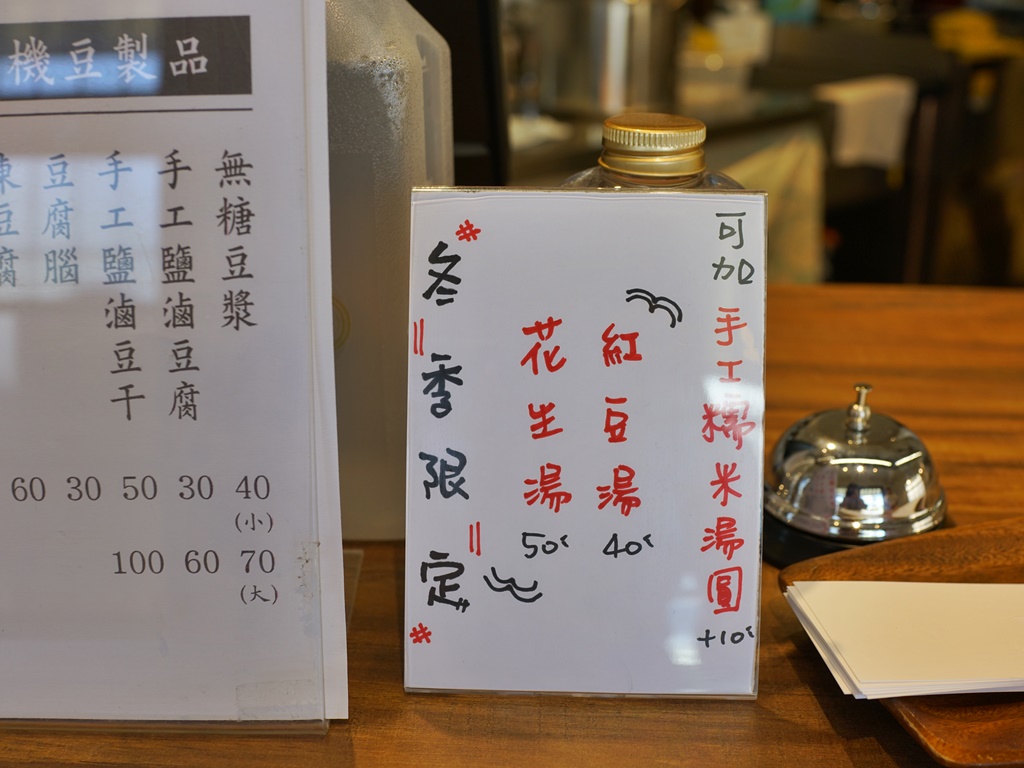 機豆製品
無糖豆漿 40 (小) 70 (大)
手工鹽滷豆腐 30 60
手工鹽滷豆干 50 100
豆腐腦 30
凍豆腐 60
可加手工糯米湯圓 +10.
紅豆湯 40.
花生湯 50.
冬季限定